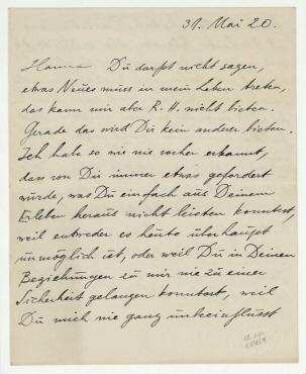 31. Mai 20.
Hanna Du darfst nicht sagen,
etwas Neues muss in mein Leben treten,
das kann mir aber R. H. nicht bieten.
Gerade das wird Dir kein anderer bieten.
Ich habe es wie nie vorher erkannt,
dass von Dir immer etwas gefordert
wurde, was Du einfach aus Deinem
Erleben heraus nicht leisten konntest,
weil entweder es heute überhaupt
unmöglich ist, oder weil Du in Deinen
Beziehungen zu mir nie zu einer
Sicherheit gelangen konntest, weil
Du mich nie ganz unbeeinflusst